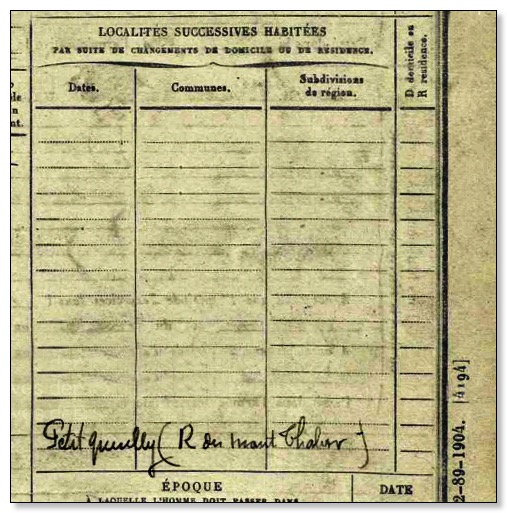 LOCALITÉS SUCCESSIVES HABITÉES
PAR SUITE DE CHANGEMENTS DE DOMICILE OU DE RÉSIDENCE.
Dates.
Communes.
Subdivisions
de région.
D domicile ou
R résidence.
le
n
nt.
Petit quevilly (R du mont Thabor)
ÉPOQUE
À LAQUELLE L'HOMME DOIT PASSER DANS
DATE
2-89-1904. [4194]